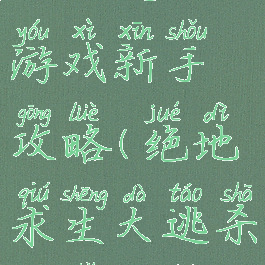 yóu xì xīn shǒu
游戏新手
gōng lüè jué dì
攻略(绝地
qiú shēng dà táo shā
求生大逃杀